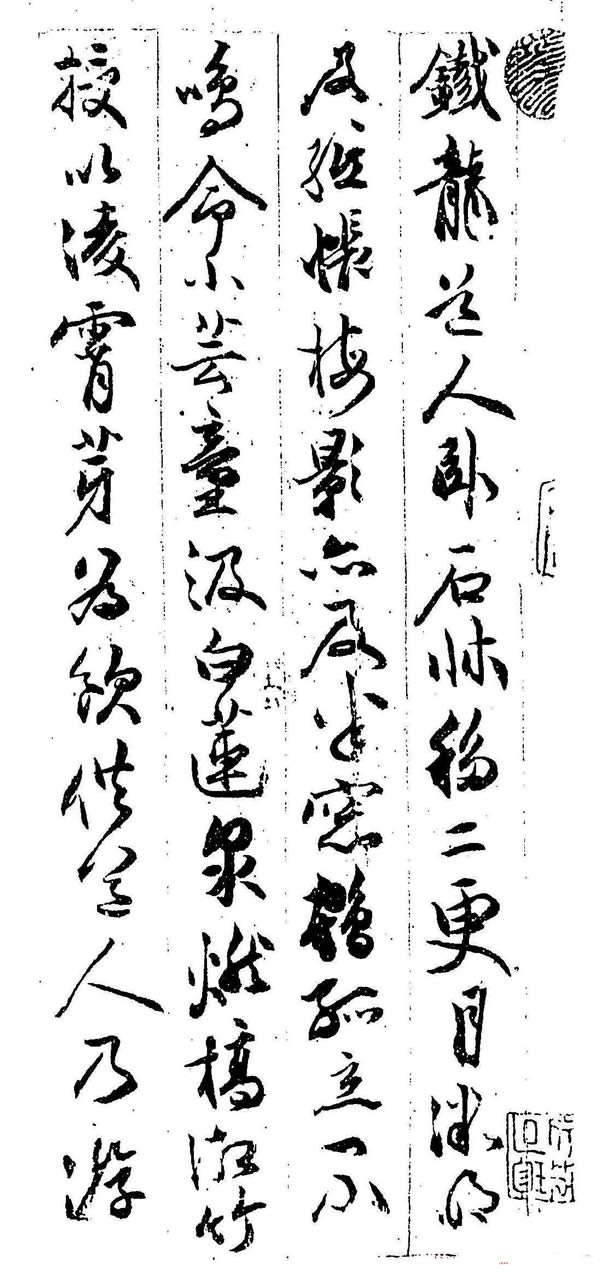 鐵龍道人臥石牀移二更月微明
及紙帳梅影亦及半窓鶴孤立不
鳴命小芸童汲白蓮泉燃槁湘竹
授以淩霄芽為飲供道人乃游